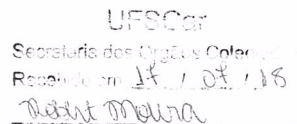 UFSCar
Secretaria dos Órgãos Colegi
Recebido em 17 / 07 / 18
Moura